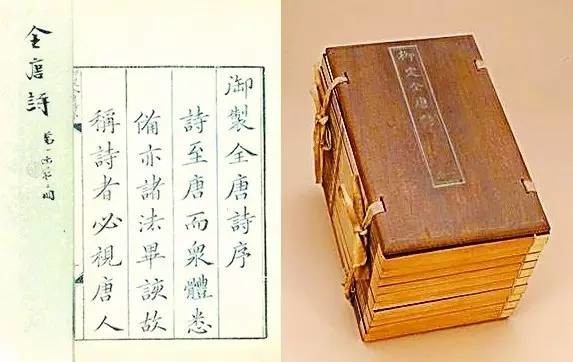 全唐詩
御製全唐詩序
詩至唐而衆體悉
俻亦諸法畢該故
稱詩者必視唐人
御定全唐詩